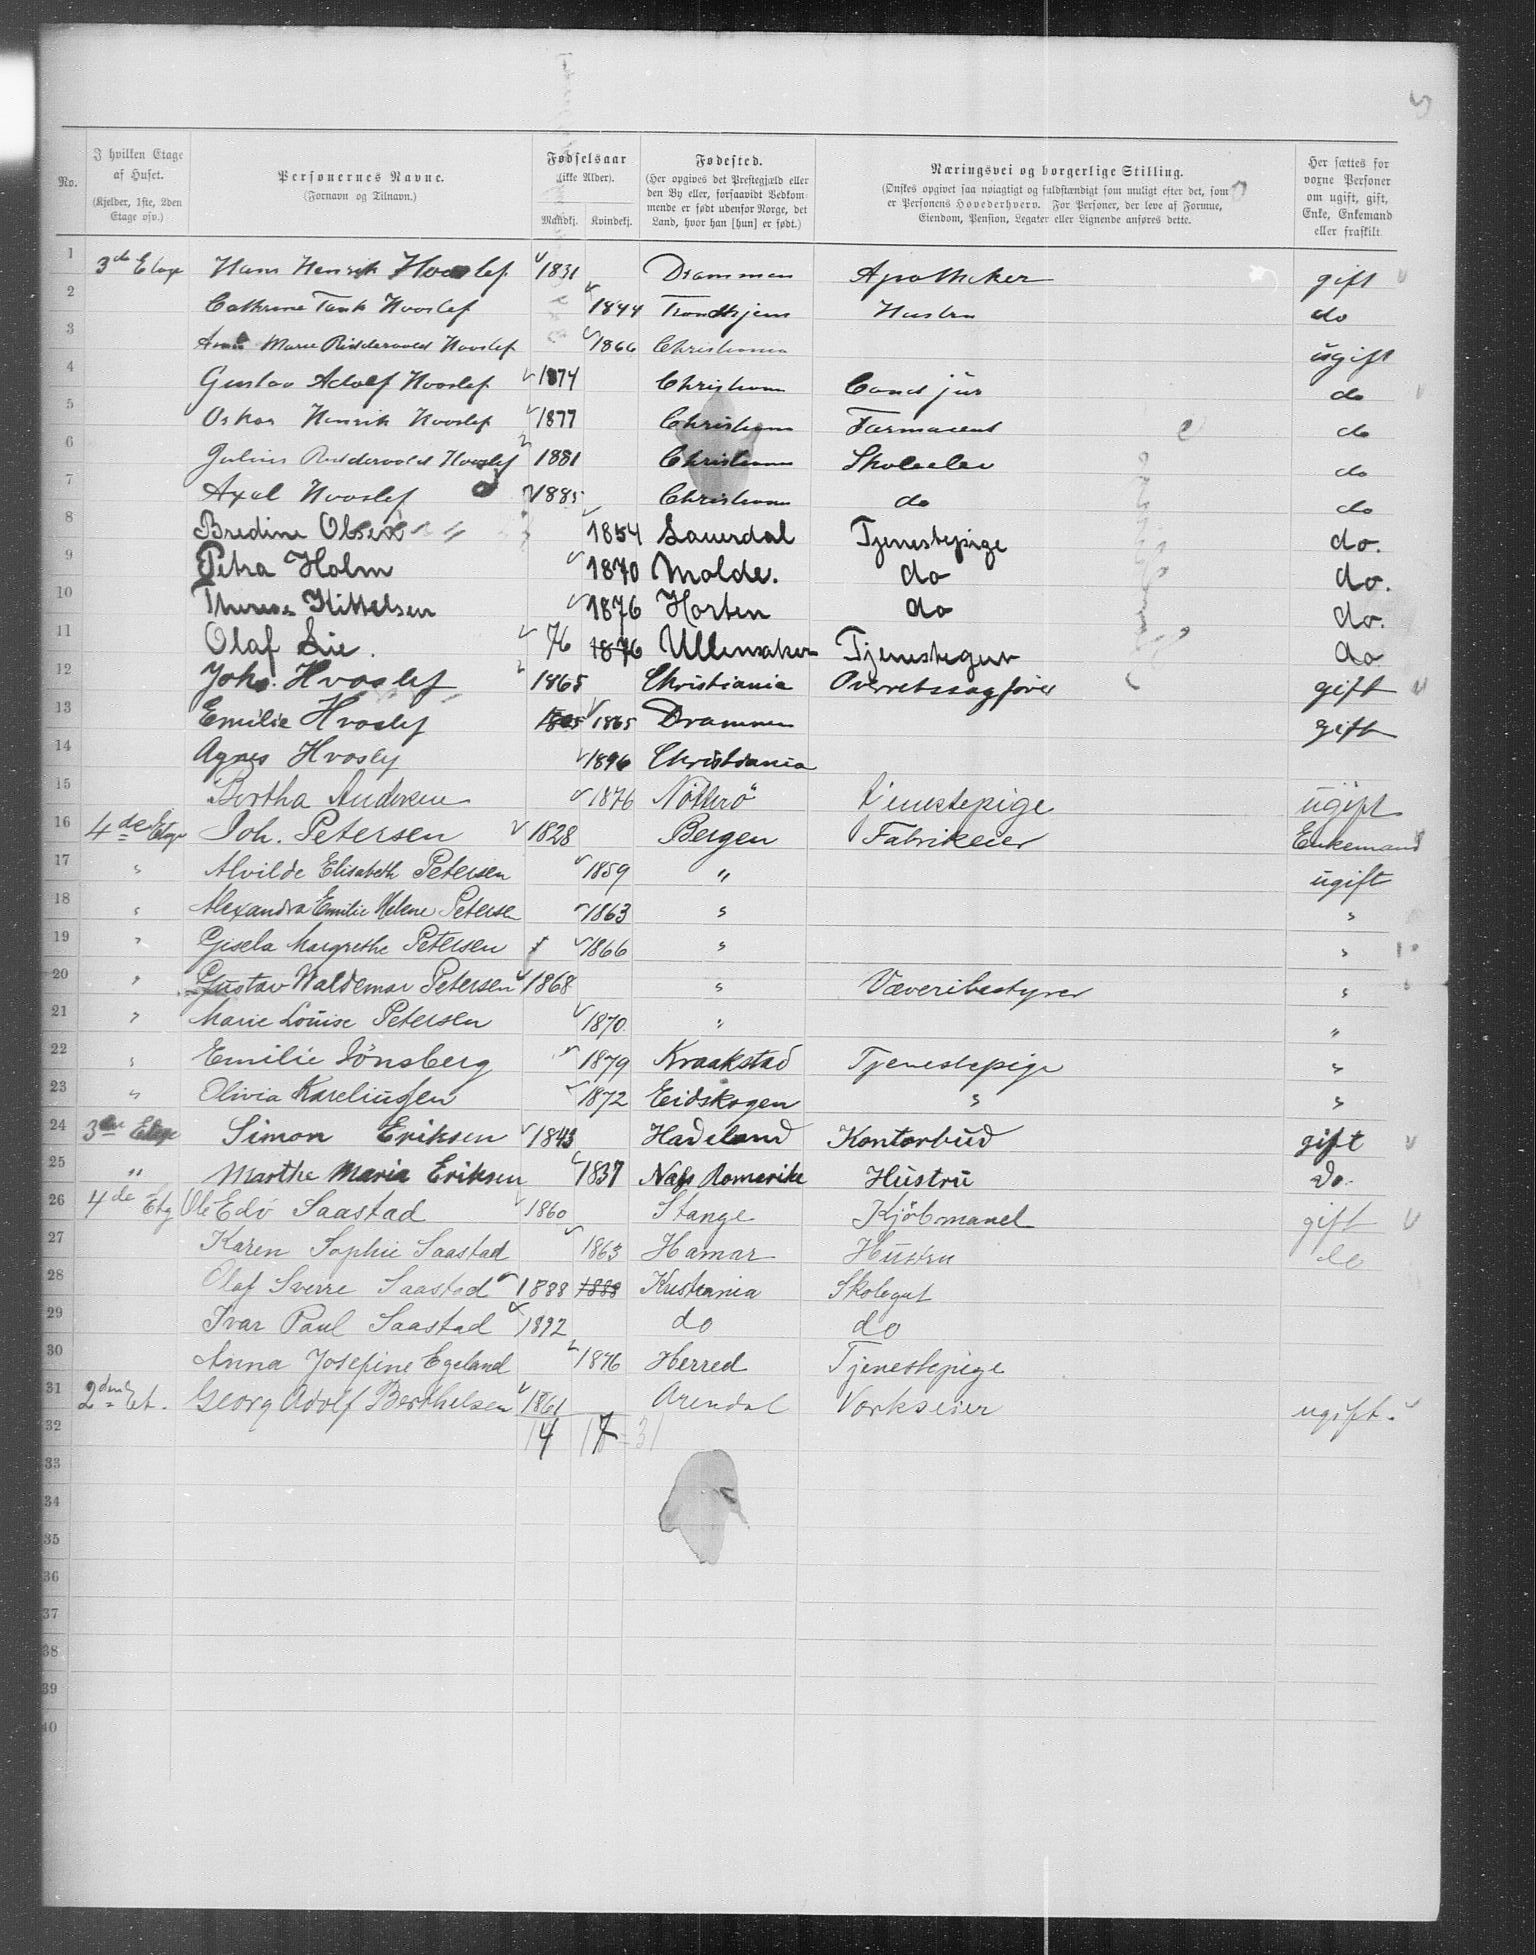 No.
I hvilken Etage af Huset. (Kjelder, 1ste, 2den Etage osv.)
Personernes Navne. (Fornavn og Tilnavn.)
Fødselsaar (ikke Alder). Mandkj. Kvindekj.
Fødested. (Her opgives det Prestegjæld eller den By eller, forsaavidt Vedkommende er født udenfor Norge, det Land, hvor han [hun] er født.)
Næringsvei og borgerlige Stilling. (Ønskes opgivet saa nøiagtigt og fuldstændigt som muligt efter det, som er Personens Hovederhverv. For Personer, der leve af Formue, Eiendom, Pension, Legater eller Lignende anføres dette.
Her sættes for voxne Personer om ugift, gift, Enke, Enkemand eller fraskilt.
1 3de Etage Hans Henrik Hvoslef 1831 Drammen Apotheker gift
2 Cathrine Tank Hvoslef 1844 Trondhjem Hustru do
3 Anna Marie Ridderwold Hvoslef 1866 Christiania ugift
4 Gustav Adolf Hvoslef 1874 Christiania Cand jur do
5 Oskar Henrik Hvoslef 1877 Christiania Farmaceut do
6 Julius Ridderwold Hvoslef 1881 Christiania Skoleelev do
7 Axel Hvoslef 1885 Christiania do do
8 Bredine Olsen 1854 Sauerdal Tjenestepige do.
9 Petra Holm 1870 Molde. do do.
10 Therese Kittelsen 1876 Horten do do.
11 Olaf Lie. 76 1876 Ullensaker Tjenestegut do
12 Johs. Hvoslef 1865 Christiania Overretssagfører gift
13 Emilie Hvoslef 1865 1865 Drammen gift
14 Agnes Hvoslef 1896 Christiania
15 Bertha Andersen 1876 Nötterö tjenestepige ugift
16 4de Etage Joh. Petersen 1828 Bergen Fabrikeier Enkemand
17 " Alvilde Elisabeth Petersen 1859 " ugift
18 " Alexandra Emilie Helene Petersen 1863 " "
19 " Gisela Margrethe Petersen 1866 " "
20 " Gustav Waldemar Petersen 1868 " Væveribestyrer "
21 " Marie Louise Petersen 1870 " "
22 " Emilie Tönsberg 1879 Kraakstad Tjenestepige "
23 " Olivia Kareliussen 1872 Eidskogen " "
24 3die Etage Simon Eriksen 1843 Hadeland Kontorbud gift
25 " Marthe Maria Eriksen 1837 Næs Romerike Hustru Do.
26 4de Etg Ole Edv Saastad 1860 Stange Kjöbmand gift
27 Karen Sophie Saastad 1863 Hamar Hustru do
28 Olaf Sverre Saastad 1888 1888 Kristiania Skolegut
29 Ivar Paul Saastad 1892 do do
30 Anna Josefine Egeland 1876 Herred Tjenestepige
31 2den Et. Georg Adolf Berthelsen 1861 Arendal Værkseier ugift.
32 14 17 - 31
33
34
35
36
37
38
39
40